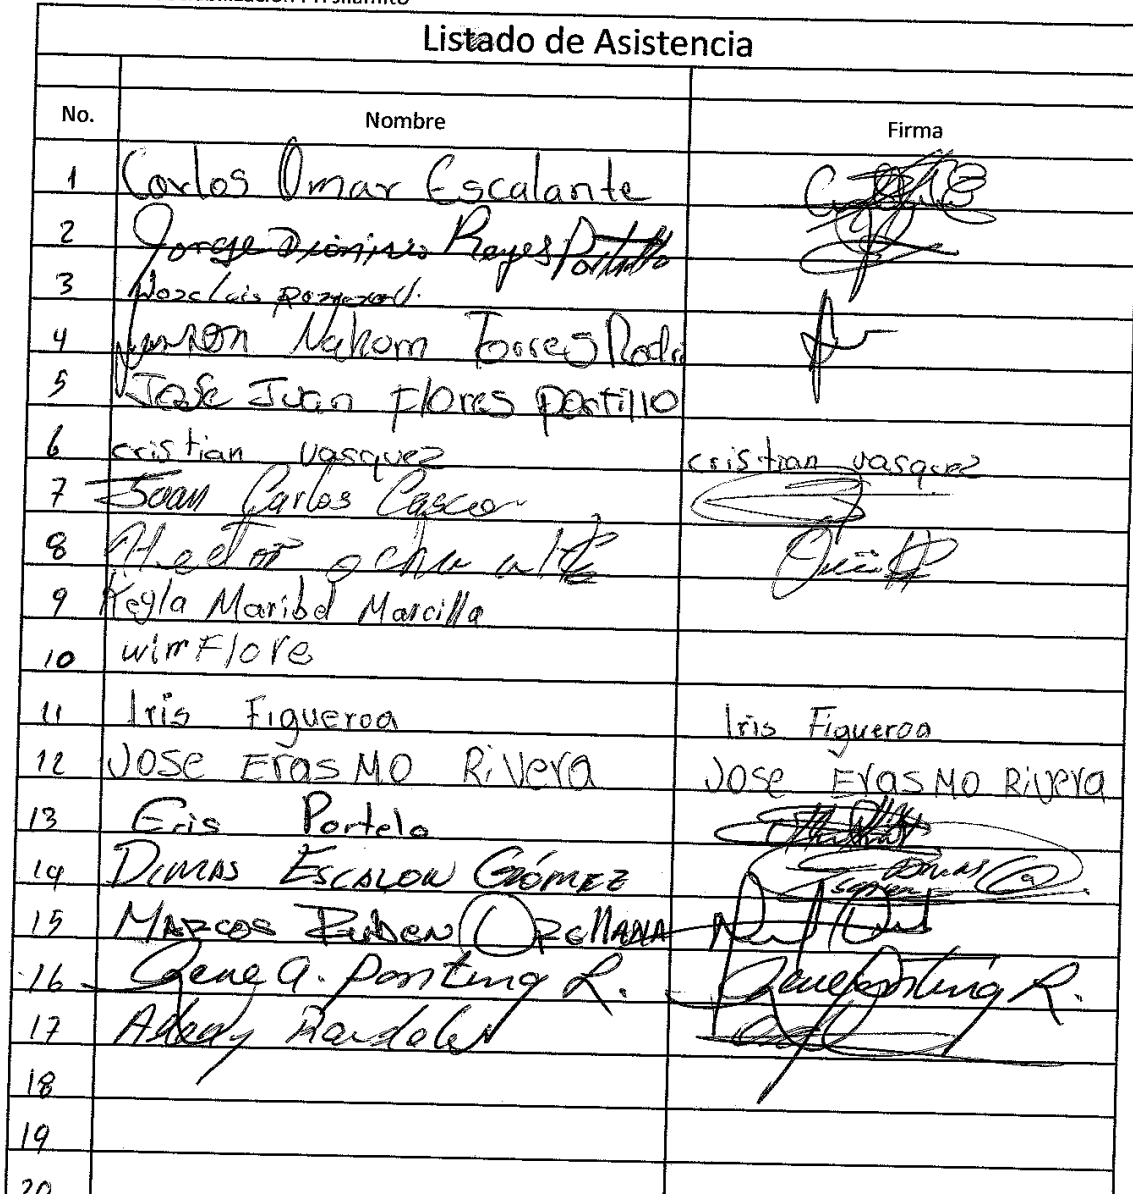 Listado de Asistencia
No. Nombre Firma
1 Carlos Omar Escalante
2 Jorge Dionisio Reyes Portillo
3
4 Nahom Torres Rodr
5 Jose Juan Flores portillo
6 cristian vasquez cristian vasquez
7 Juan Carlos Casco
8 Hector
9 Keyla Maribel Marcilla
10 wilmFlore
11 Iris Figueroa Iris Figueroa
12 JOSE ErasMO RiVera JOSE ErasMO RiVera
13 Eris Portelo
14 DIMAS ESCALON GÓMEZ
15 MARCOS RubEN OREllANA
16 Rene A. Ponting R. Rene Ponting R.
17
18
19
20